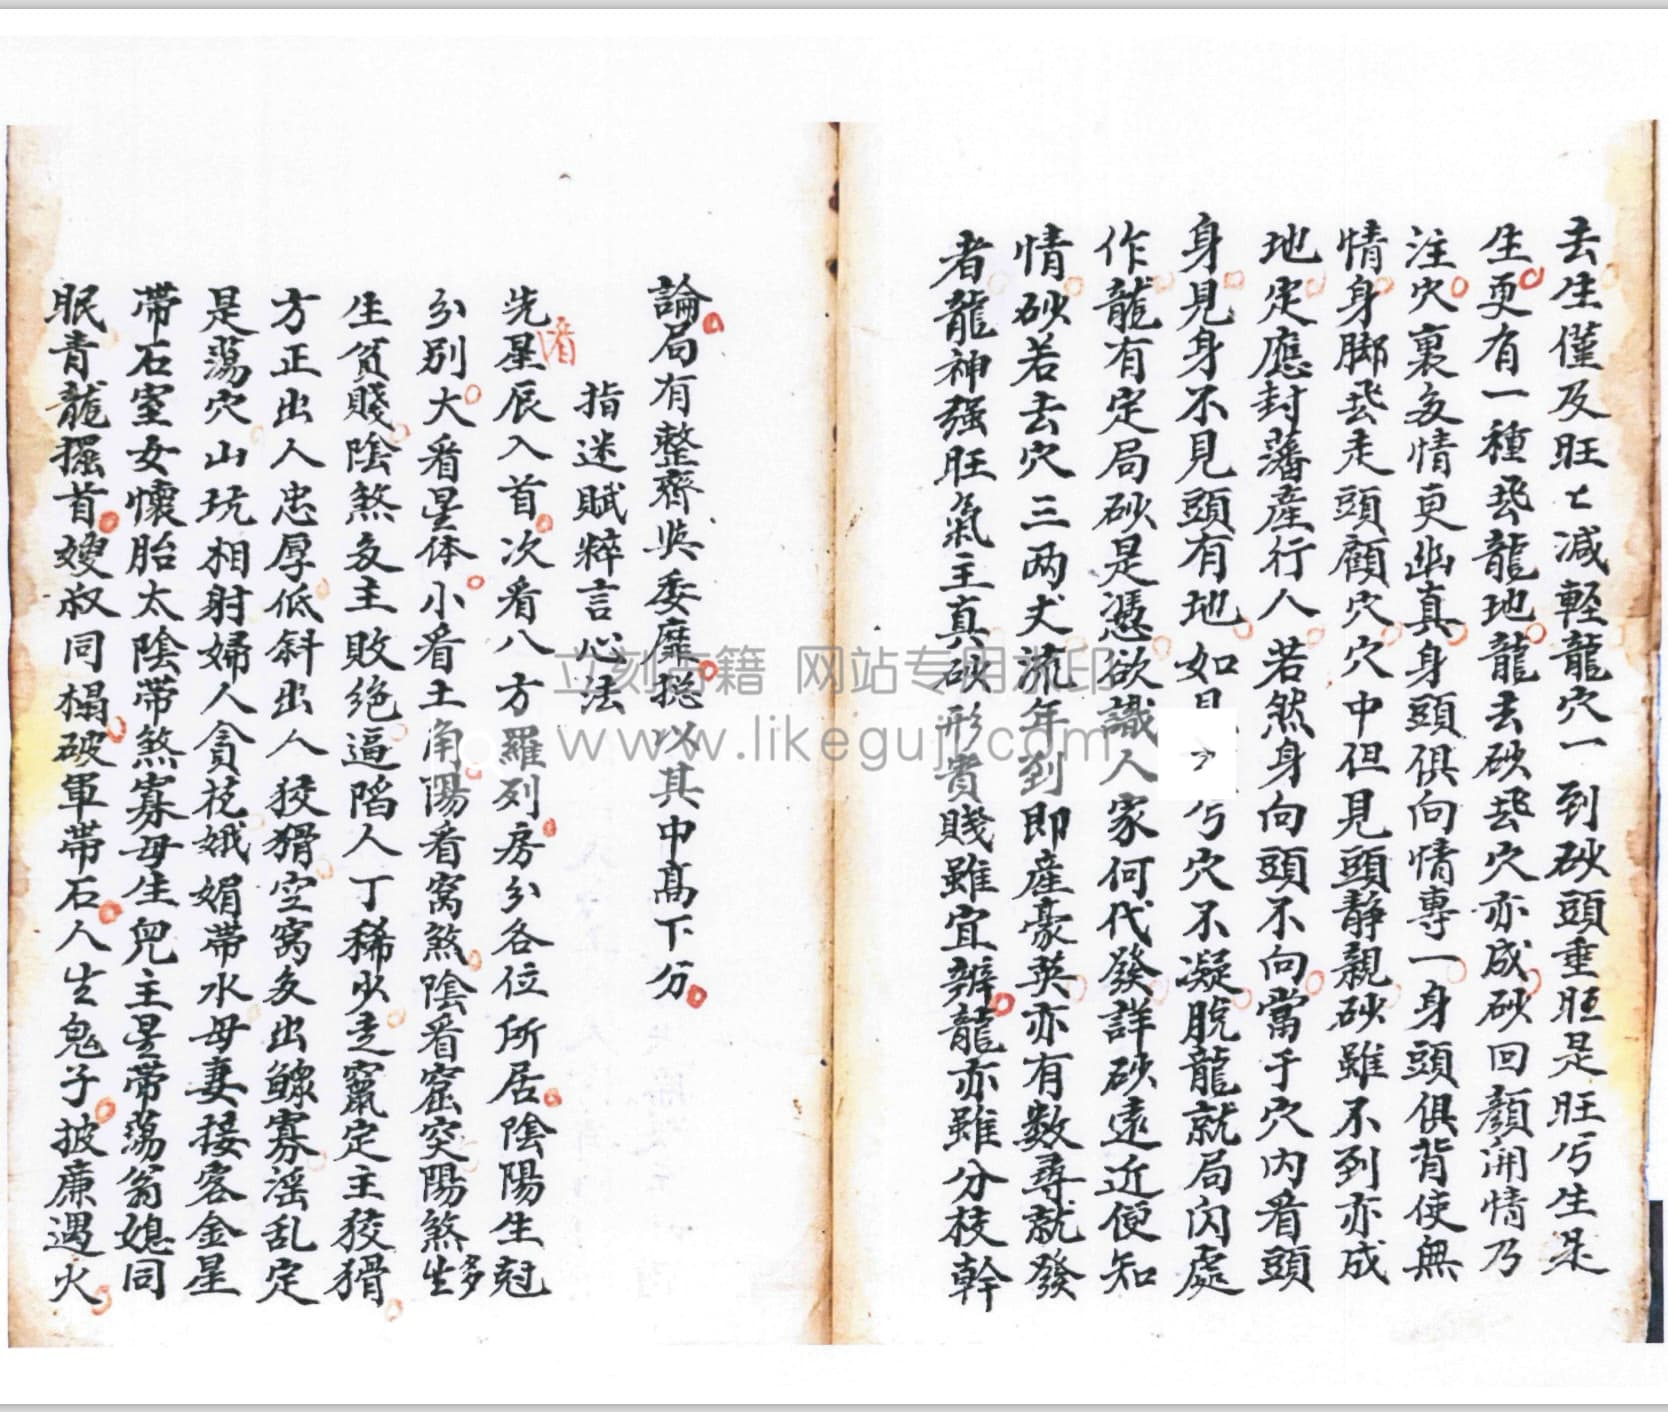 去生僅及旺亡減輕龍穴一到砂頭重旺是旺兮生是
生更有一種飛龍地龍去砂飛穴亦成砂回顏開情乃
注穴裏多情更幽真身頭俱向情專一身頭俱背使無
情身脚飛走頭顧穴穴中但見頭靜親砂雖不到亦成
地定應封藩產行人若然身向頭不向當于穴內看頭
身見身不見頭有地如見兮穴不凝脫龍就局閃處
作龍有定局砂是憑欲識人家何代發詳砂遠近便知
情砂若去穴三两丈流年到即產豪英亦有數尋就發
者龍神强旺氣主真砂形貴賤雖宜辨龍亦雖分枝幹
論局有整齊與委靡揔以其中高下分
指迷賦粹言心法
先看星辰入首次看八方羅列房分各位所居陰陽生尅
分別大看星体小看土角陽看窩煞陰看窟突陽煞多生
生貧賤陰煞多主敗絶逼陷人丁稀少走竄定主狡猾
方正出人忠厚低斜出人狡猾空窝多出鰥寡滛乱定
是蕩穴山玩相射婦人貪花娥媚帶水母妻接客金星
帶石室女懷胎太陰帶煞寡母生兒主星帶蕩翁媳同
眠青龍擢首嫂叔同榻破軍帶石人生鬼子披廉遇火
立刻古籍 网站专用水印
www.likeguji.com